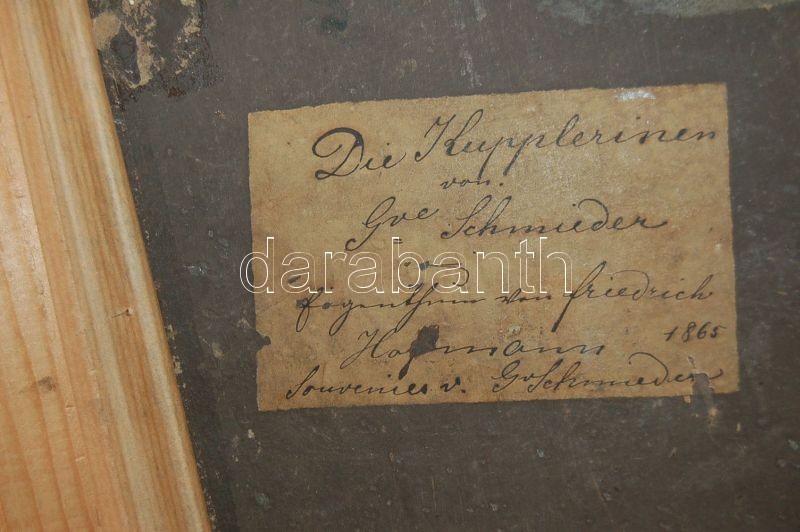 Die Kupplerinen
von.
Gve Schmieder
darabanth
Eogenthum von friedrich
Hoffmann 1865
Souvenies v. GvSchmieder